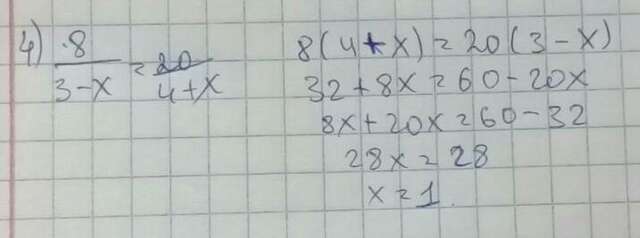 4) 8/(3-x) = 20/(4+x)
8(4+x) = 20(3-x)
32+8x = 60-20x
8x+20x = 60-32
28x = 28
x = 1.